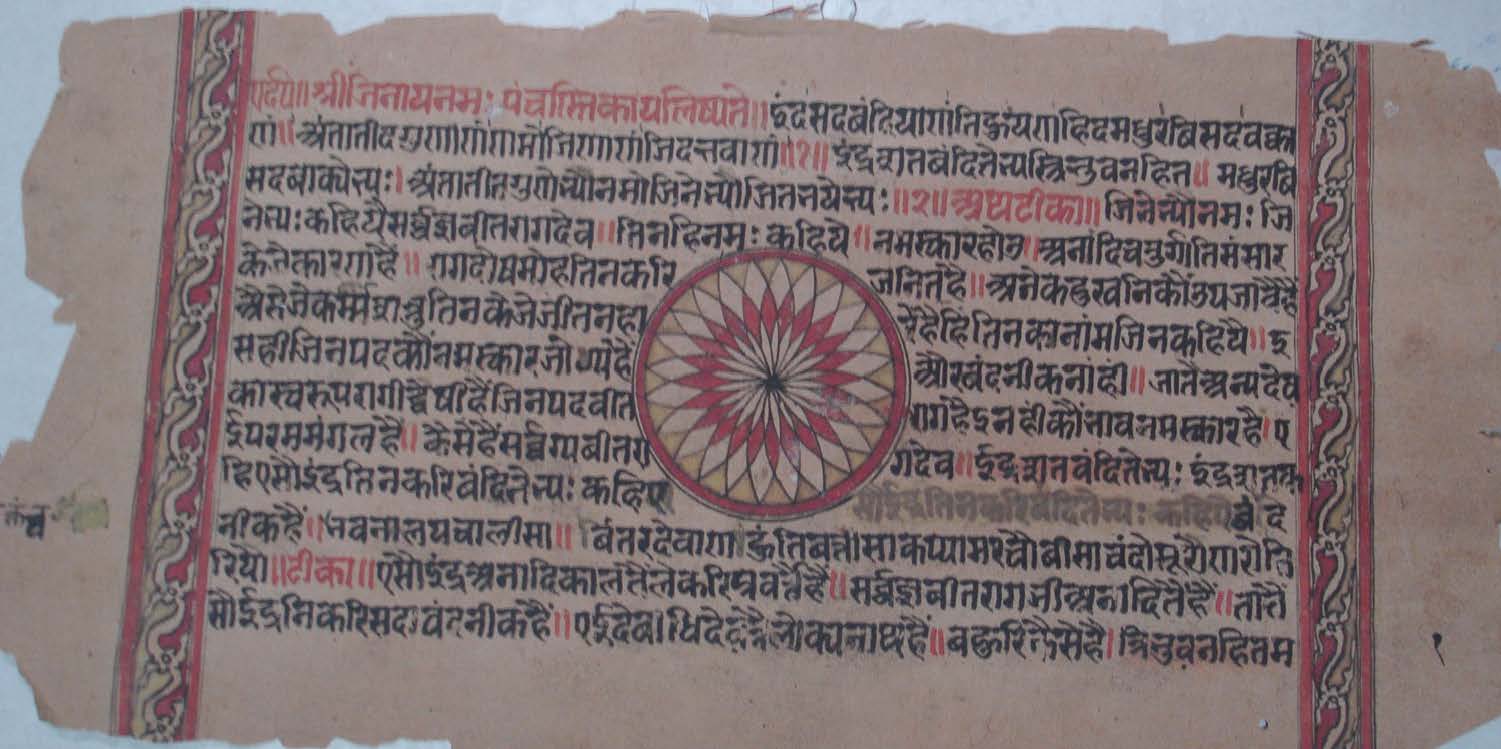 एर्द०॥ श्रीजिनायनमः पंचास्तिकायलिष्यते॥ इंदसदवंदियाणंतिहुयणहिदमधुरविसदवक्का
णं॥ अंतातीदगुणाणंणमोजिणाणंजिदत्तवाणं॥१॥ इंद्रशतवंदितेभ्यस्त्रिभुवनहित॥ मधुरवि
सदवाक्येभ्यः। अंतातीतगुणेभ्योनमोजिनेभ्योजितनयेभ्यः॥१॥ अथटीका॥ जिनेभ्योनमः जि
नेभ्यः कहियैसर्वज्ञवीतरागदेव॥ तिनहिनमः कहिये॥ नमस्कारहोउ॥ अनादिचतुर्गतिसंसार
केजेकारणहैं॥ रागदोषमोहतिनकरि जनितहै॥ अनेकदुखनिकौंउपजावैहै
अैसेजेकर्म्मशत्रुतिनकेजेजीतनहा रेहैहितिनकानांमजिनकहियै॥ इ
सहीजिनपदकौंनमस्कारजोग्यहै औरवंदनीकनांही॥ जातैअन्यदेव
कास्वरूपरागीद्वेषीहैजिनपदवीत रागहैइनहीकौंभावनमस्कारहै। ए
ईपरममंगलहै॥ कैसेहैंसर्वग्यवीतरा गदेव॥ इंद्रशतवंदितेभ्यः इंद्रशतक
हिएसौइंद्रतिनकरिवंदितेभ्यः कहिए वंदे
नीकहैं॥ भवनालयचालीसा॥ विंतरदेवाणहुंतिबत्तीसाकप्पामरचौवीसाचंदोसूरोणरोति
रियो॥ टीका॥ एसौइंद्रअनादिकालतैलेकरिप्रवर्त्तैहैं॥ सर्वज्ञवीतरागभीअनादितैहैं॥ तातै
सौईंद्रनिकरिसदावंदनीकहैं॥ एईदेवाधिदेवत्रैलोक्यनाथहैं॥ बहुरिकैसेहै। त्रिभुवनहितम
१